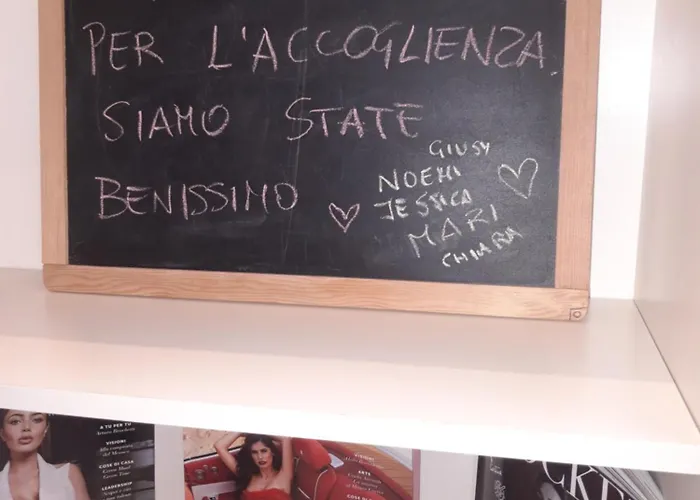 PER L'ACCOGLIENZA.
SIAMO STATE
BENISSIMO
GIUSY
NOEMI
JESSICA
MARI
CHIARA
A TU PER TU
VISIONI
COSE DI CASA
LEADERSHIP
VISIONI
ARTE
COSE DI CASA